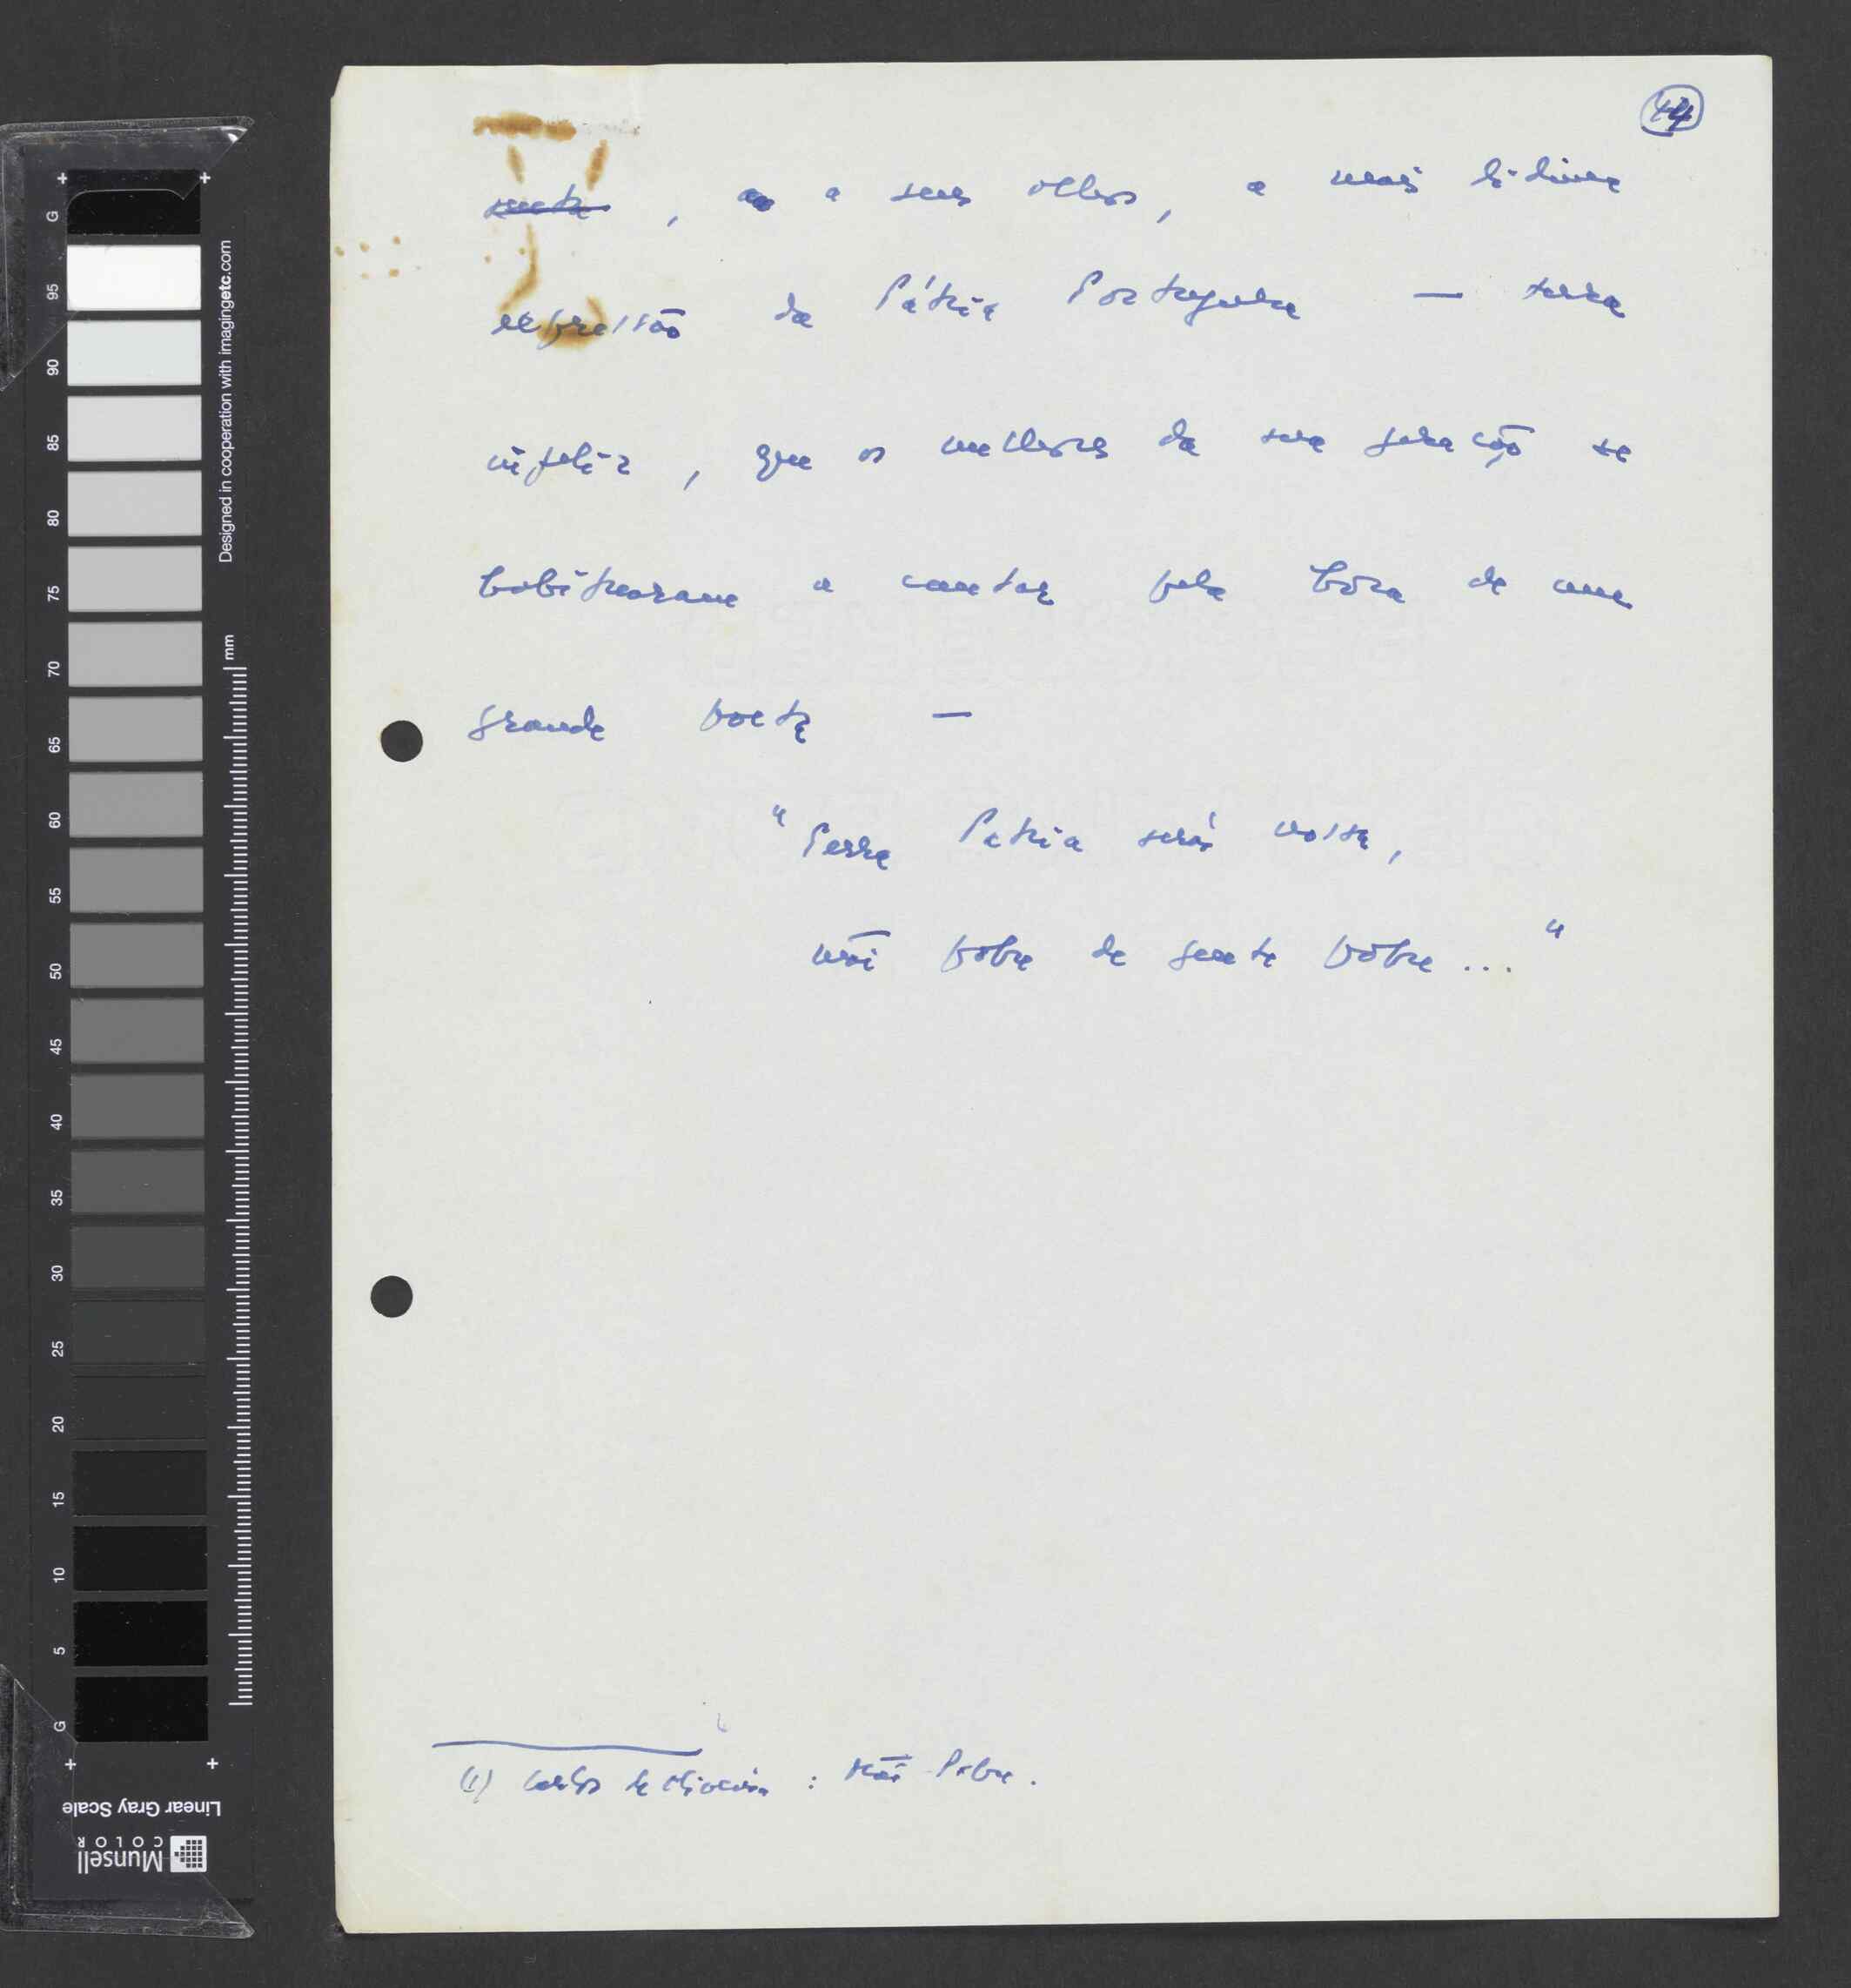 44
mente, a seus olhos, a mais lídima
expressão da Pátria Portuguesa — terra
infeliz, que os melhores da sua geração se
habituaram a cantar pela bôca de um
grande poeta —
"Terra Pátria serás nossa,
mãi pobre de gente pobre..."
(1) Carlos de Oliveira: Mãi Pobre.
G
95
90
85
80
75
70
65
60
55
50
45
40
35
30
25
20
15
10
5
G
Designed in cooperation with imagingetc.com
mm
Linear Gray Scale
Munsell
COLOR